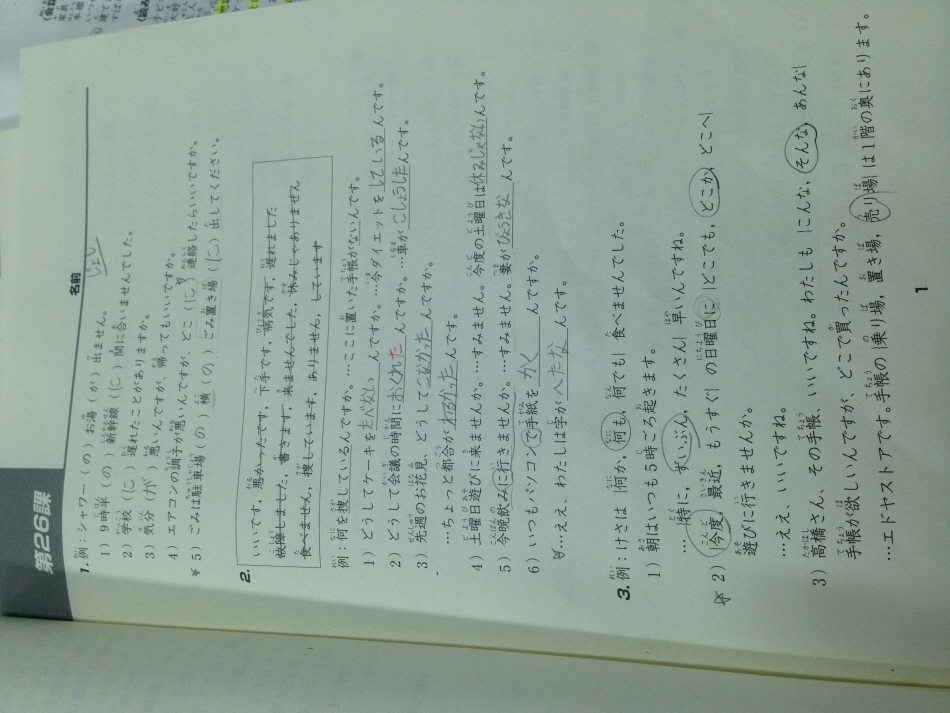 第26課
名前 じょと
1. 例：シャワー（の）お湯（が）出ません。
1）9時半（の）新幹線（に）間に合いませんでした。
2）学校（に）遅れたことがありますか。
3）気分（が）悪いんですが、帰ってもいいですか。
4）エアコンの調子が悪いんですが、どこ（に）連絡したらいいですか。
5）ごみは駐車場（の）横（の）ごみ置き場（に）出してください。
2.
いいです，悪かったです，下手です，病気です，遅れました
故障しました，書きます，来ませんでした，休みじゃありません
食べません，捜しています，ありません，しています
例：何を捜しているんですか。…ここに置いた手帳がないんです。
1）どうしてケーキをたべないんですか。…今ダイエットをしているんです。
2）どうして会議の時間におくれたんですか。…車がこしょうしたんです。
3）先週のお花見、どうしてこなかったんですか。
…ちょっと都合がわるかったんです。
4）土曜日遊びに来ませんか。…すみません。今度の土曜日は休みじゃないんです。
5）今晩飲みに行きませんか。…すみません。妻がびょうきなんです。
6）いつもパソコンで手紙をかくんですか。
…ええ、わたしは字がへたなんです。
3. 例：けさは｛何か，何も，何でも｝食べませんでした。
1）朝はいつも5時ごろ起きます。
…｛特に，ずいぶん，たくさん｝早いんですね。
2）｛今度，最近，もうすぐ｝の日曜日に｛どこでも，どこか，どこへ｝
遊びに行きませんか。
…ええ、いいですね。
3）高橋さん、その手帳、いいですね。わたしも｛こんな，そんな，あんな｝
手帳が欲しいんですが、どこで買ったんですか。
…エドヤストアです。手帳の｛乗り場，置き場，売り場｝は1階の奥にあります。
1